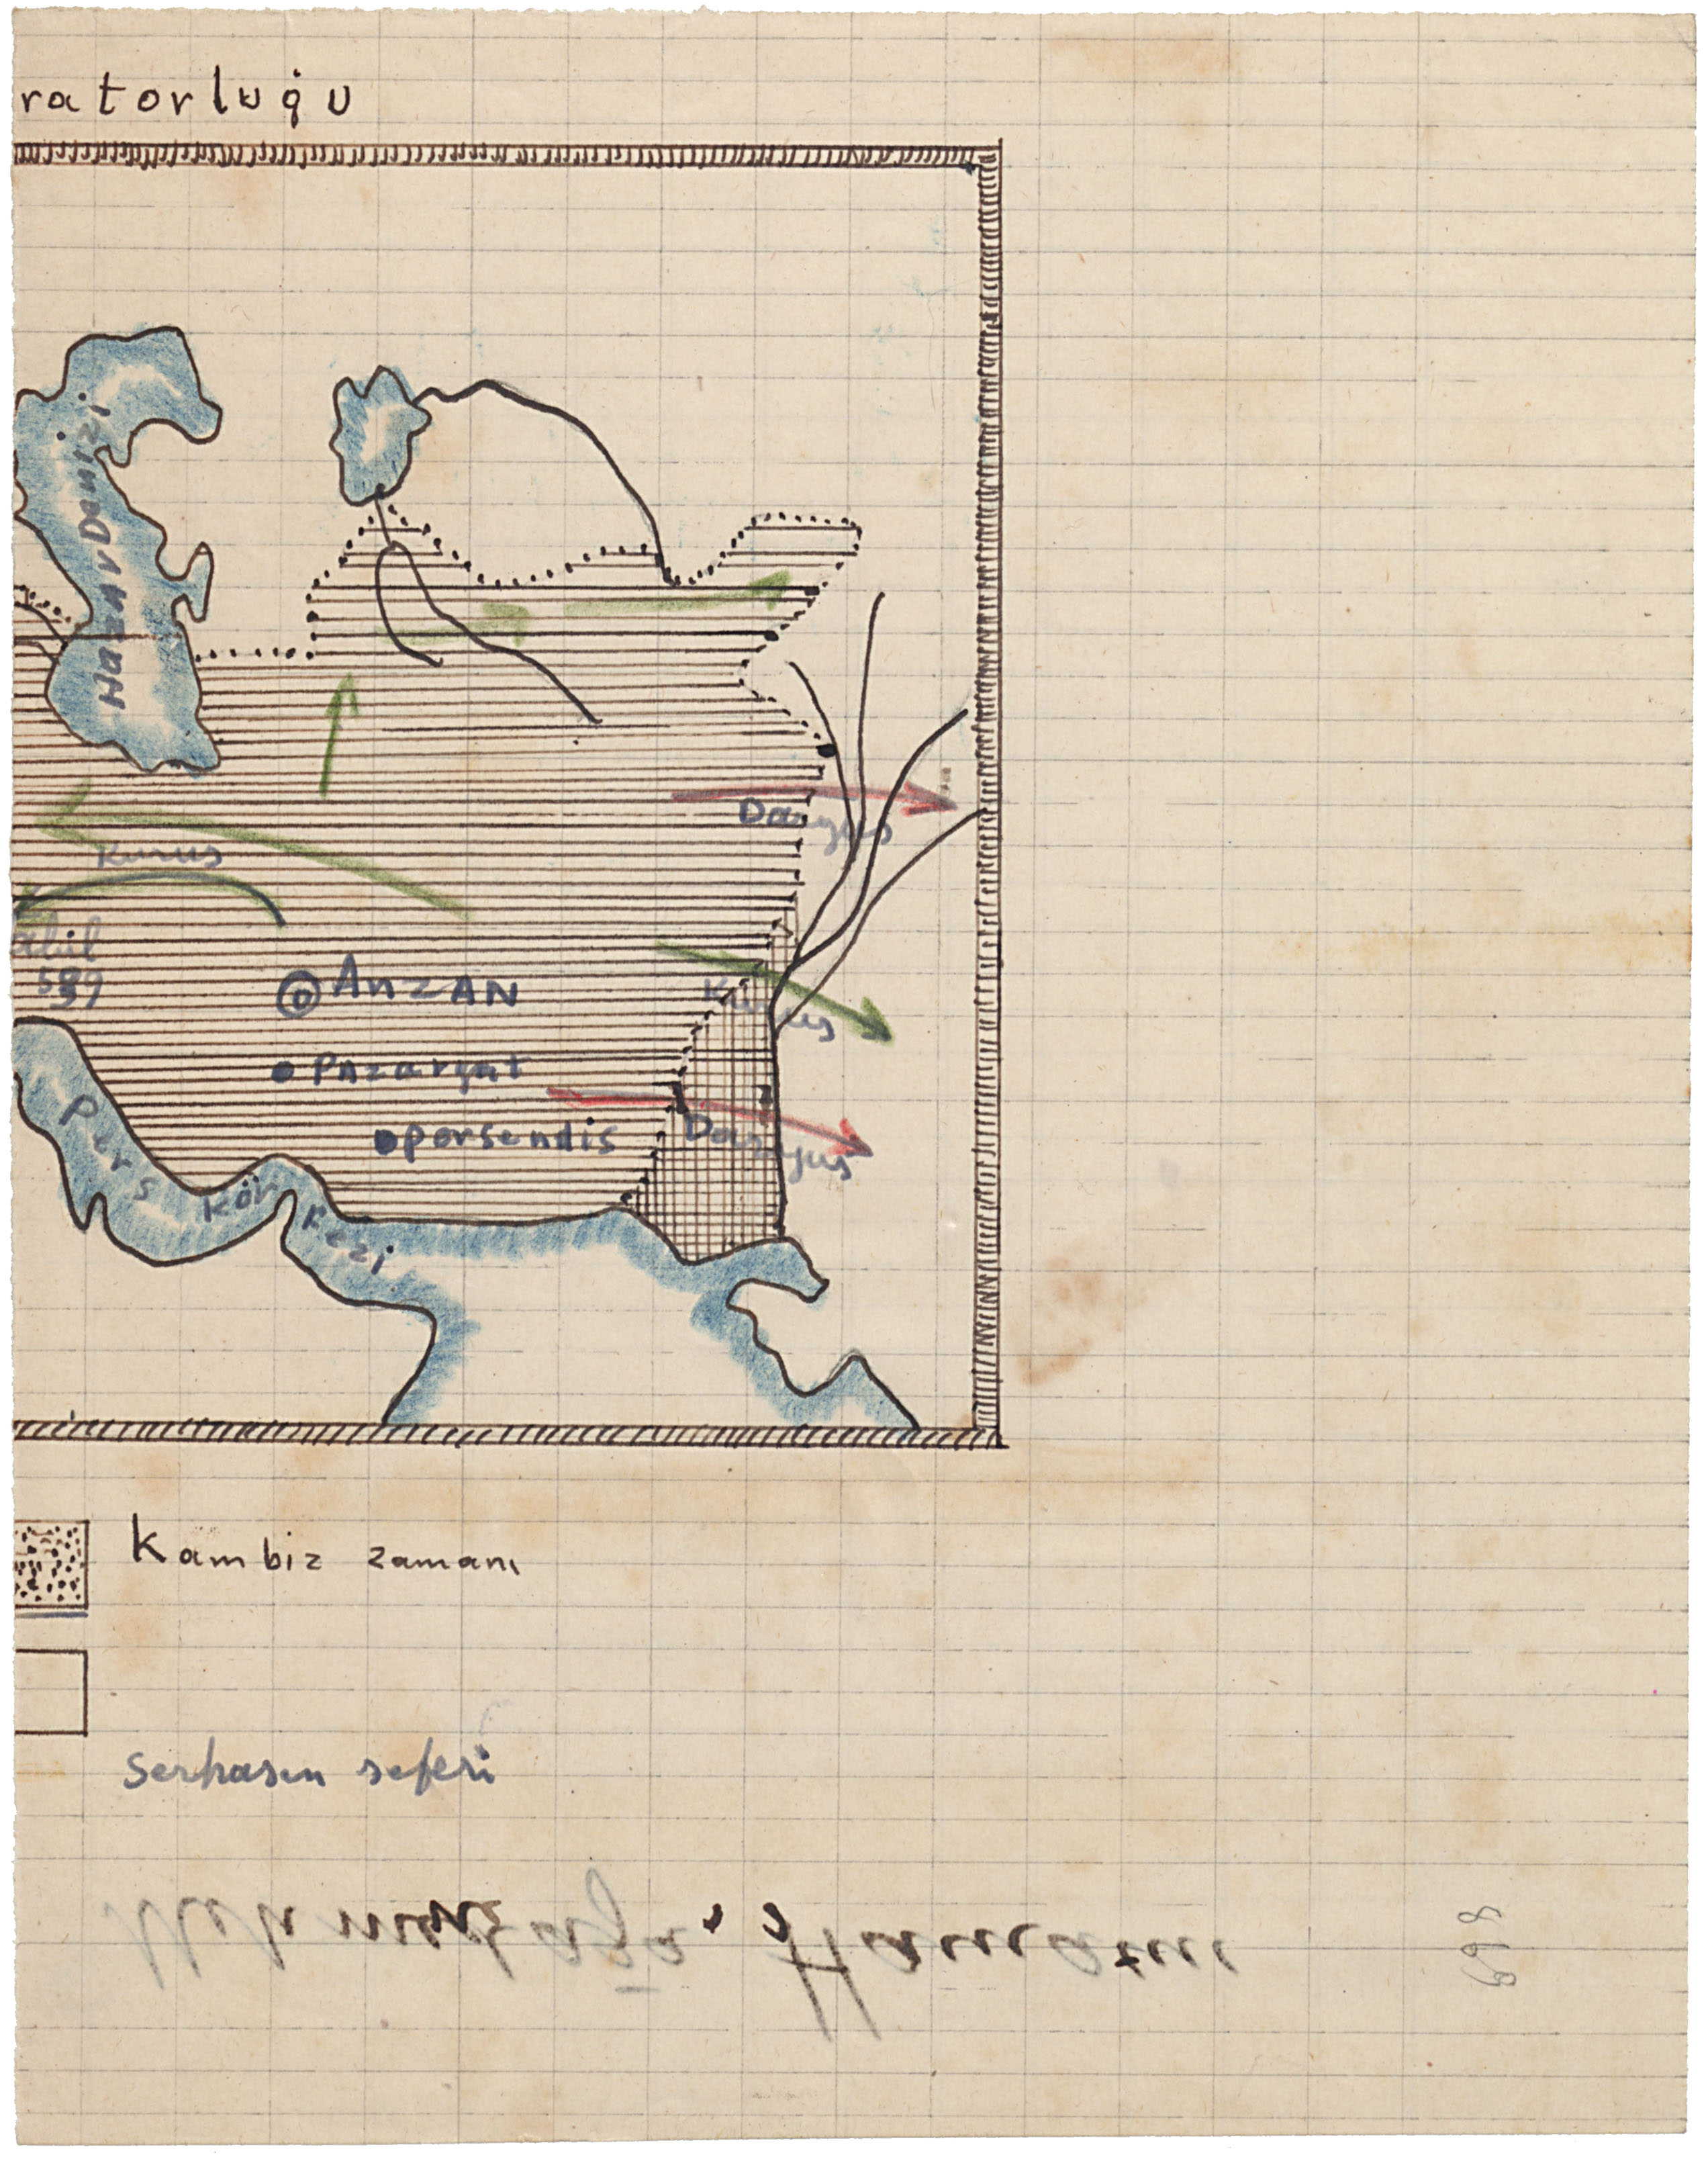 ratorluğu
Hazar Denizi
Daryus
Kurus
abil
539
Anzan
Kurus
Pazargat
Daryus
persendis
Pers Körfezi
Kambiz zamanı
Serhasın seferi